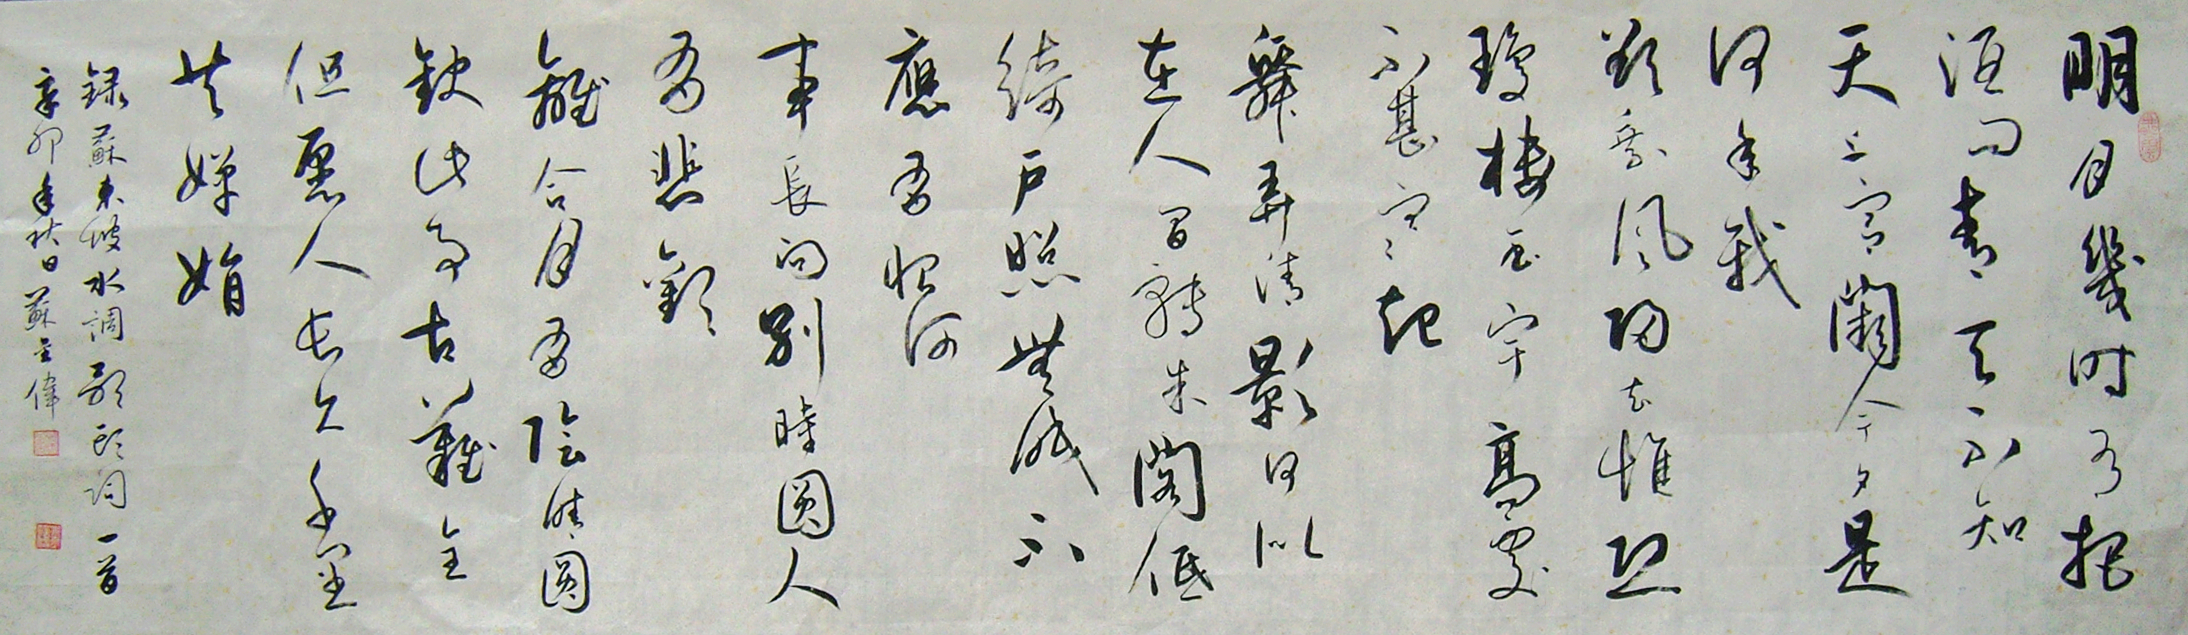 明月幾时有把
酒问青天不知
天上宫闕今夕是
何年我
欲乘風歸去惟恐
瓊樓玉宇高處
不甚寒起
舞弄清影何似
在人間轉朱閣低
綺户照無眠不
應有恨何
事長向別時圓人
有悲歡
離合月有陰晴圓
缺此事古難全
但愿人長久千里
共嬋娟
録蘇東坡水調歌頭詞一首
辛卯年秋日蘇偉